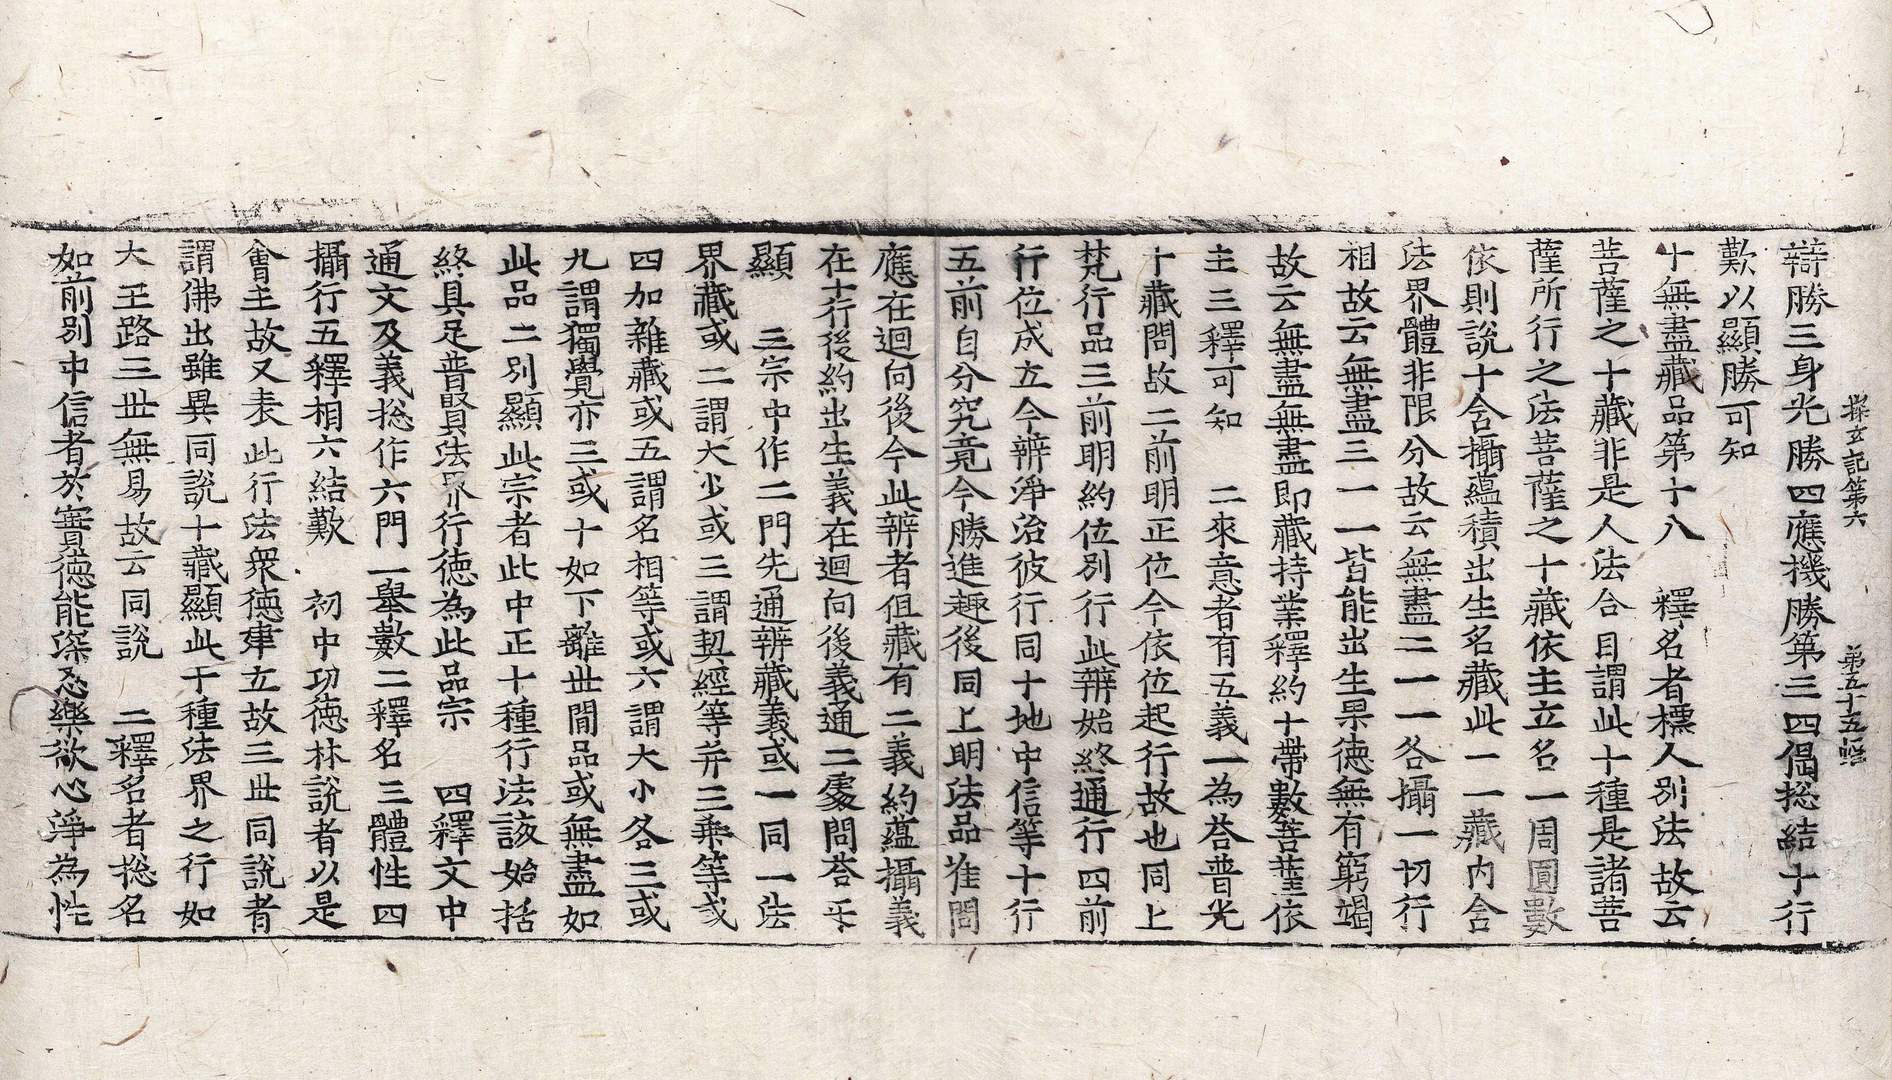 探玄記第六　第五十五幅
辯勝三身光勝四應機勝第三四偈捴結十行
歎以顯勝可知
十無盡藏品第十八　釋名者標人別法故云
菩薩之十藏非是人法合目謂此十種是諸菩
薩所行之法菩薩之十藏依主立名一周圓數
依則說十含攝蘊積出生名藏此一一藏內含
法界體非限分故云無盡二一一各攝一切行
相故云無盡三一一皆能出生果德無有窮竭
故云無盡無盡即藏持業釋約十帶數菩薩依
主三釋可知　二來意者有五義一為荅普光
十藏問故二前明正位今依位起行故也同上
梵行品三前明約位別行此辨始終通行四前
行位成立今辨淨治彼行同十地中信等十行
五前自分究竟今勝進趣後同上明法品准問
應在迴向後今此辨者但藏有二義約蘊攝義
在十行後約出生義在迴向後義通二處問荅乐
顯　三宗中作二門先通辨藏義或一同一法
界藏或二謂大少或三謂契經等并三乘等或
四加雜藏或五謂名相等或六謂大小各三或
九謂獨覺亦三或十如下離世間品或無盡如
此品二別顯此宗者此中正十種行法該始括
終具足普賢法界行德為此品宗　四釋文中
通文及義捴作六門一舉數二釋名三體性四
攝行五釋相六結歎　初中功德林說者以是
會主故又表此行法衆德建立故三世同說者
謂佛出雖異同說十藏顯此十種法界之行如
大王路三世無易故云同說　二釋名者捴名
如前別中信者於實德能深忍樂欲心淨為性